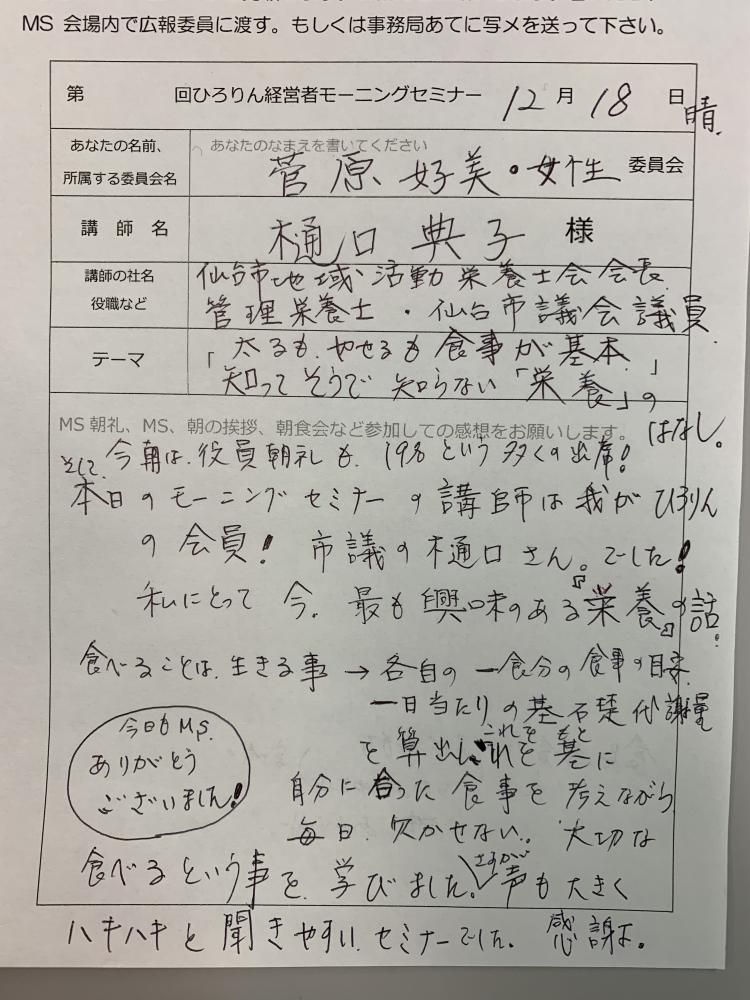 MS 会場内で広報委員に渡す。もしくは事務局あてに写メを送って下さい。
第 回ひろりん経営者モーニングセミナー 12月 18 日 晴.
あなたの名前、
所属する委員会名
あなたのなまえを書いてください
菅原 好美・女性 委員会
講 師 名
樋口 典子 様
講師の社名
役職など
仙台市地域活動栄養士会会長
管理栄養士・仙台市議会議員.
テーマ
「太るも、やせるも食事が基本.」
知ってそうで知らない「栄養」の
はなし。
MS 朝礼、MS、朝の挨拶、朝食会など参加しての感想をお願いします。
今朝は、役員朝礼も、19名という多くの出席!
そして、
本日のモーニングセミナーの講師は我がひろりん
の会員! 市議の樋口さん。でした!
私にとって今、最も興味のある『栄養』の話!
食べることは、生きる事 → 各自の一食分の食事の目安.
一日当たりの基礎代謝量
を算出し、これをもとに
自分に合った食事を考えながら
毎日、欠かせない、大切な
食べるという事を、学びました。さすが声も大きく
ハキハキと聞きやすい、セミナーでした。感謝。
今日もMS.
ありがとう
ございました!